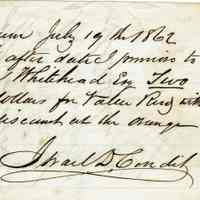 July 19th 1862
after date I promise to
J Whitehead Esq Two
dollars for Value Recd with
discount at the Orange
Israel D. Condit